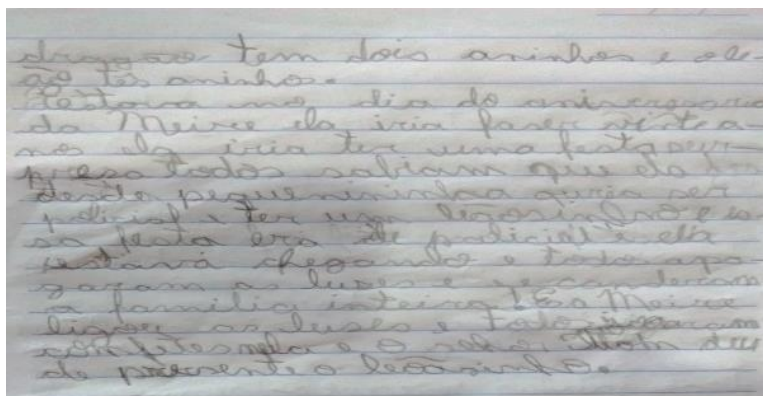 dragoão tem dois aninhos e ole-
ão tes aninhos.
Restava no dia do aniversario
da Meire ela iria faser vinte a-
nos ela iria ter uma festa sur-
presa todos sabiam que ela
desde pequenininha queria ser
policial e ter um leãosinho e es-
sa festa era de policial e ela
estava chegando e todos apa-
garam as luses e esconderam
a familia inteira! E a Meire
ligou as luses e
confetes nela e o deu
de presente o leãosinho.